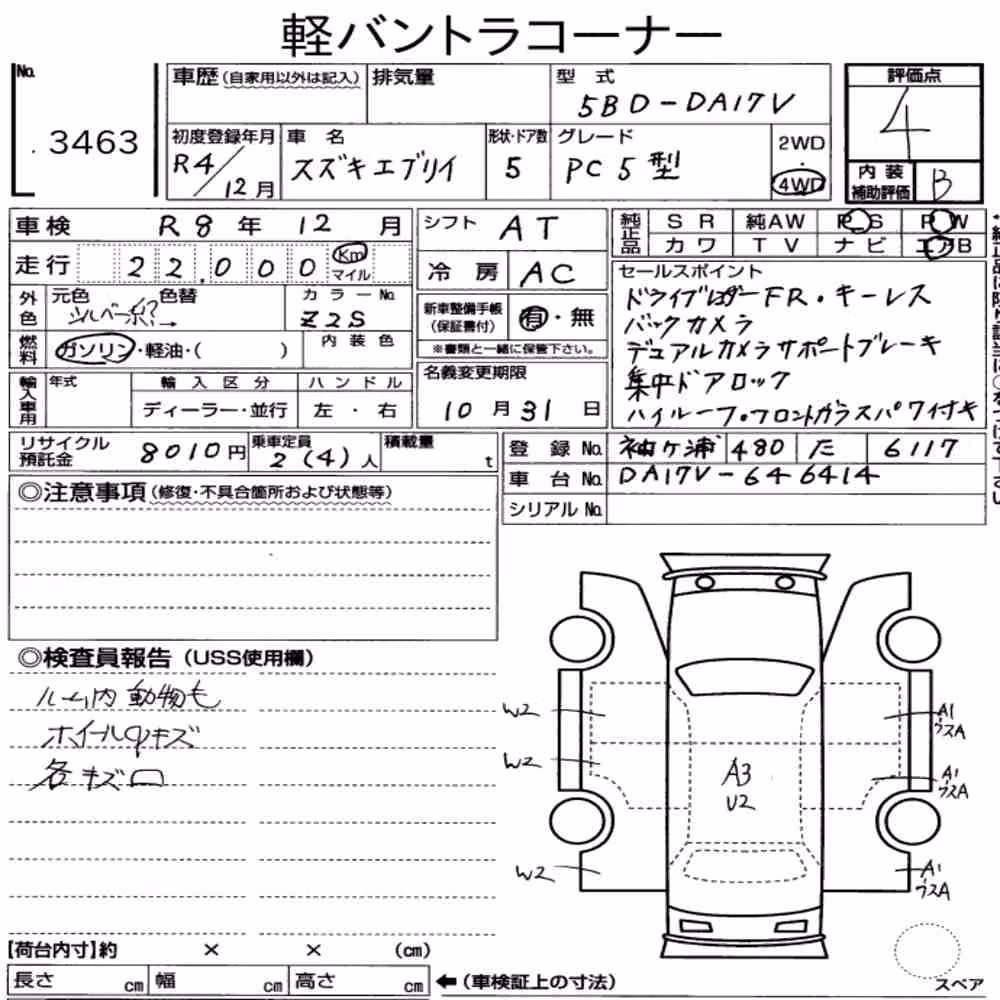 軽バントラコーナー
No. 3463
車歴(自家用以外は記入) 排気量 型式 5BD-DA17V
初度登録年月 R4/12月
車名 スズキエブリイ
形状・ドア数 5
グレード PC 5型
2WD・4WD
評価点 4
内装補助評価 B
車検 R8年 12月
走行 22,000 Km マイル
外色 元色 シルバー系? 色替 → カラーNo. Z2S
燃料 ガソリン・軽油・( ) 内装色
輸入車用 年式 輸入区分 ハンドル
ディーラー・並行 左・右
シフト AT
冷房 AC
新車整備手帳(保証書付) 有・無
※書類と一緒に保管下さい。
名義変更期限
10月31日
純正品 SR 純AW PS PW
カワ TV ナビ エアB
セールスポイント
ドライブレコーダーFR・キーレス
バックカメラ
デュアルカメラサポートブレーキ
集中ドアロック
ハイルーフ・フロントガラスパワイ付キ
リサイクル預託金 8010円 乗車定員 2(4)人 積載量 t
登録No. 袖ヶ浦 480 た 6117
車台No. DA17V-646414
シリアルNo.
◎注意事項(修復・不具合箇所および状態等)
◎検査員報告(USS使用欄)
ルーム内動物毛
ホイールキズ
各キズ凹
W2
W2
W2
A3
U2
A1
ウスA
A1
ウスA
A1
ウスA
【荷台内寸】約 × × (cm)
長さ cm 幅 cm 高さ cm ←(車検証上の寸法)
スペア